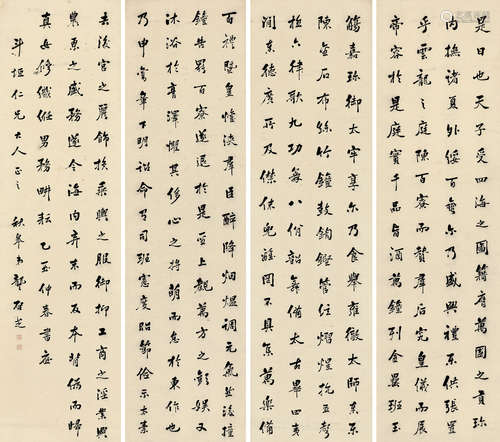 是日也天子受四海之圖籍膺萬國之貢珍
內撫諸夏外綏百蠻尔乃盛興禮樂供張置
乎雲龍之庭陳百寮而贊羣后究皇儀而展
帝容於是庭實千品旨酒萬鍾列金罍班玉
觴嘉珍御太牢享尔乃食舉雍徹太師奏樂
陳金石布絲竹鐘鼓鍧鏗管弦熠煜抗五聲
極六律歌九功舞八佾韶舞備太古畢四夷
間奏德廣所及僸佅兜離罔不具集萬樂備
百禮暨皇懽浹羣臣醉降烟熅調元氣然後撞
鐘告罷百寮遂退於是聖上覩萬方之歡娛又
沐浴於膏澤懼其侈心之將萌而怠於東作也
乃申舊章下明詔命有司班憲度昭節儉示太素
去後宮之麗飾損乘輿之服御抑工商之淫業興
農桑之盛務遂令海內弃末而反本背偽而歸
真女修織紝男務耕耘 乙丑仲春書應
斗垣仁兄大人正之 秋皋弟